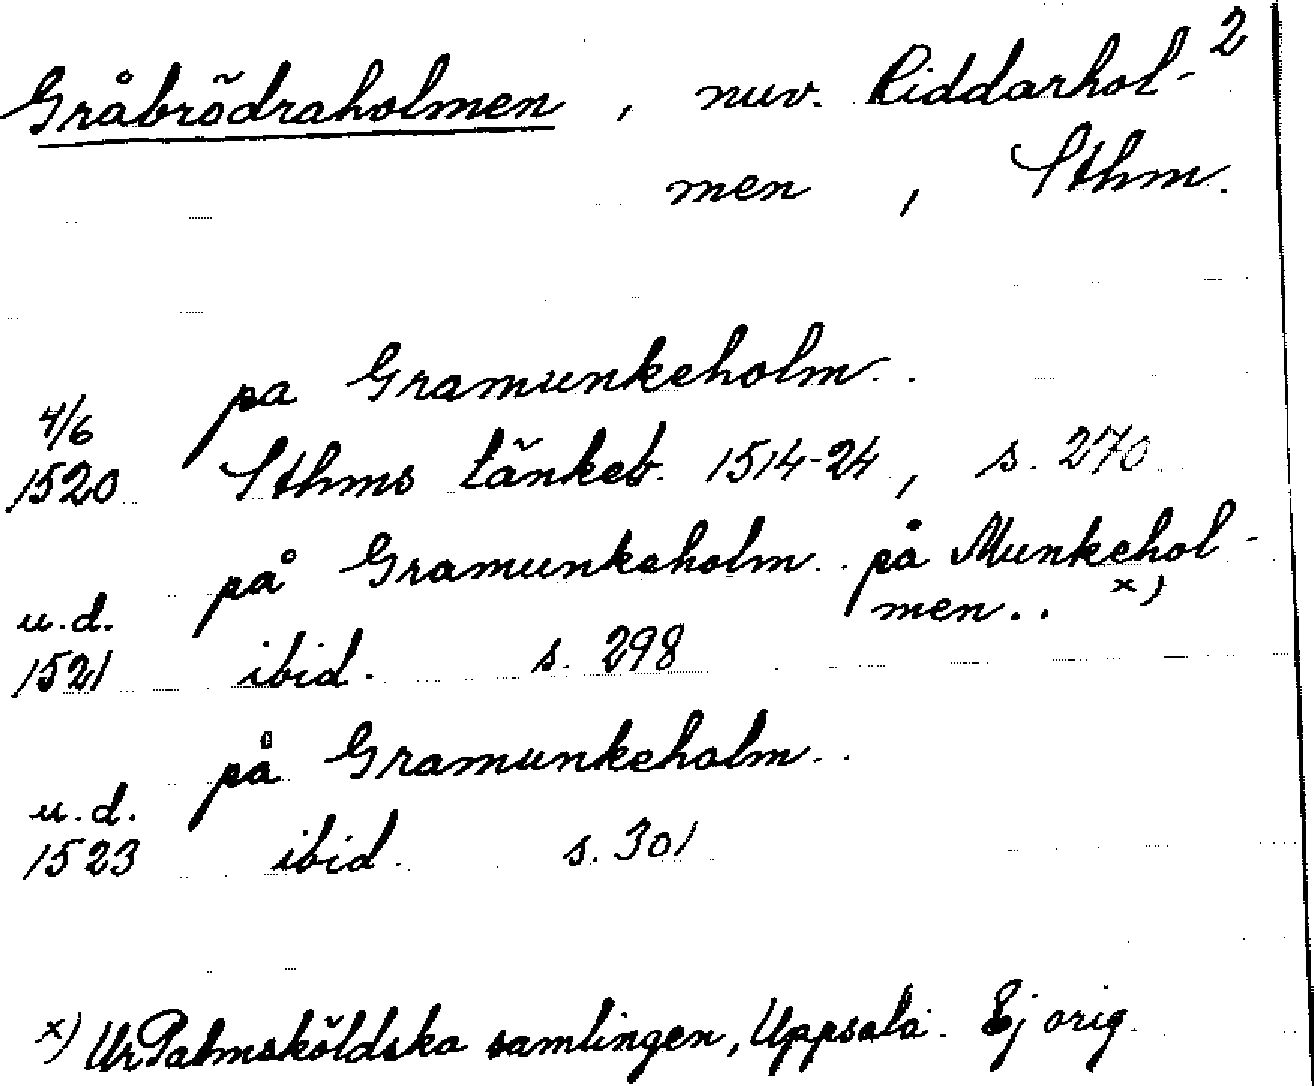 2
Gråbrödraholmen, nuv. Riddarhol-
men, Sthm.
pa Gramunkeholm..
4/6
1520 Sthms tänkeb. 1514-24, s. 270
på Gramunkeholm.. på Munkehol-
men.. x)
u.d.
1521 ibid. s. 298
på Gramunkeholm..
u.d.
1523 ibid. s. 301
x) Ur Palmsköldska samlingen, Uppsala. Ej orig.